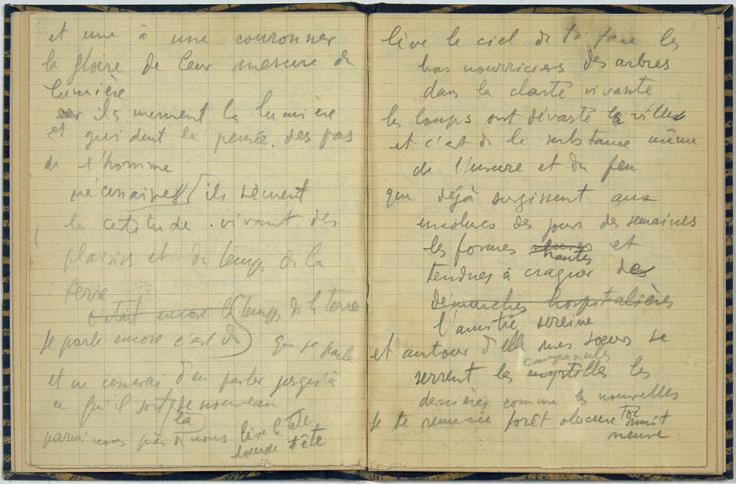 et une à une couronner
la gloire de leur mesure de
lumière
ils mènent la lumière
et guident la pensée des pas
de l'homme
nécessaires ils sèment
la certitude vivant des
plaisirs et du temps de la
terre
c'était encore le temps de la terre
je parle encore c'est du que je parle
et ne cesserai d'en parler jusqu'à
ce qu'il soit de nouveau
là
parmi nous lève la tête
lourde tête
lève le ciel de ta face les
bas nourriciers des arbres
dans la clarté vivante
les loups ont dévasté la ville
et c'est de la substance même
de l'usure et du feu
que déjà surgissent aux
encolures des jours des semaines
les formes et
hautes
tendres à craquer de
démarches hospitalières
l'amitié sereine
et autour d'elle mes sœurs se
campanules
serrent les myrtilles les
dernières comme les nouvelles
je te remercie forêt obscure toi nuit
neuve